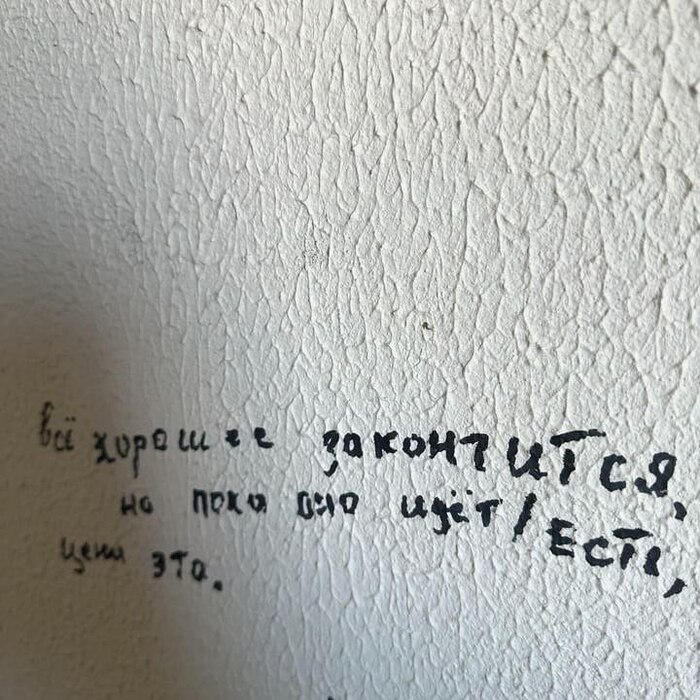 всё хорошее закончится,
но пока оно идёт/есть,
цени это.